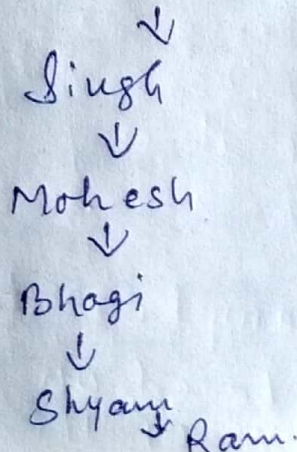 ↓
Singh
↓
Mohesh
↓
Bhagi
↓
Shyam
↓ Ram.